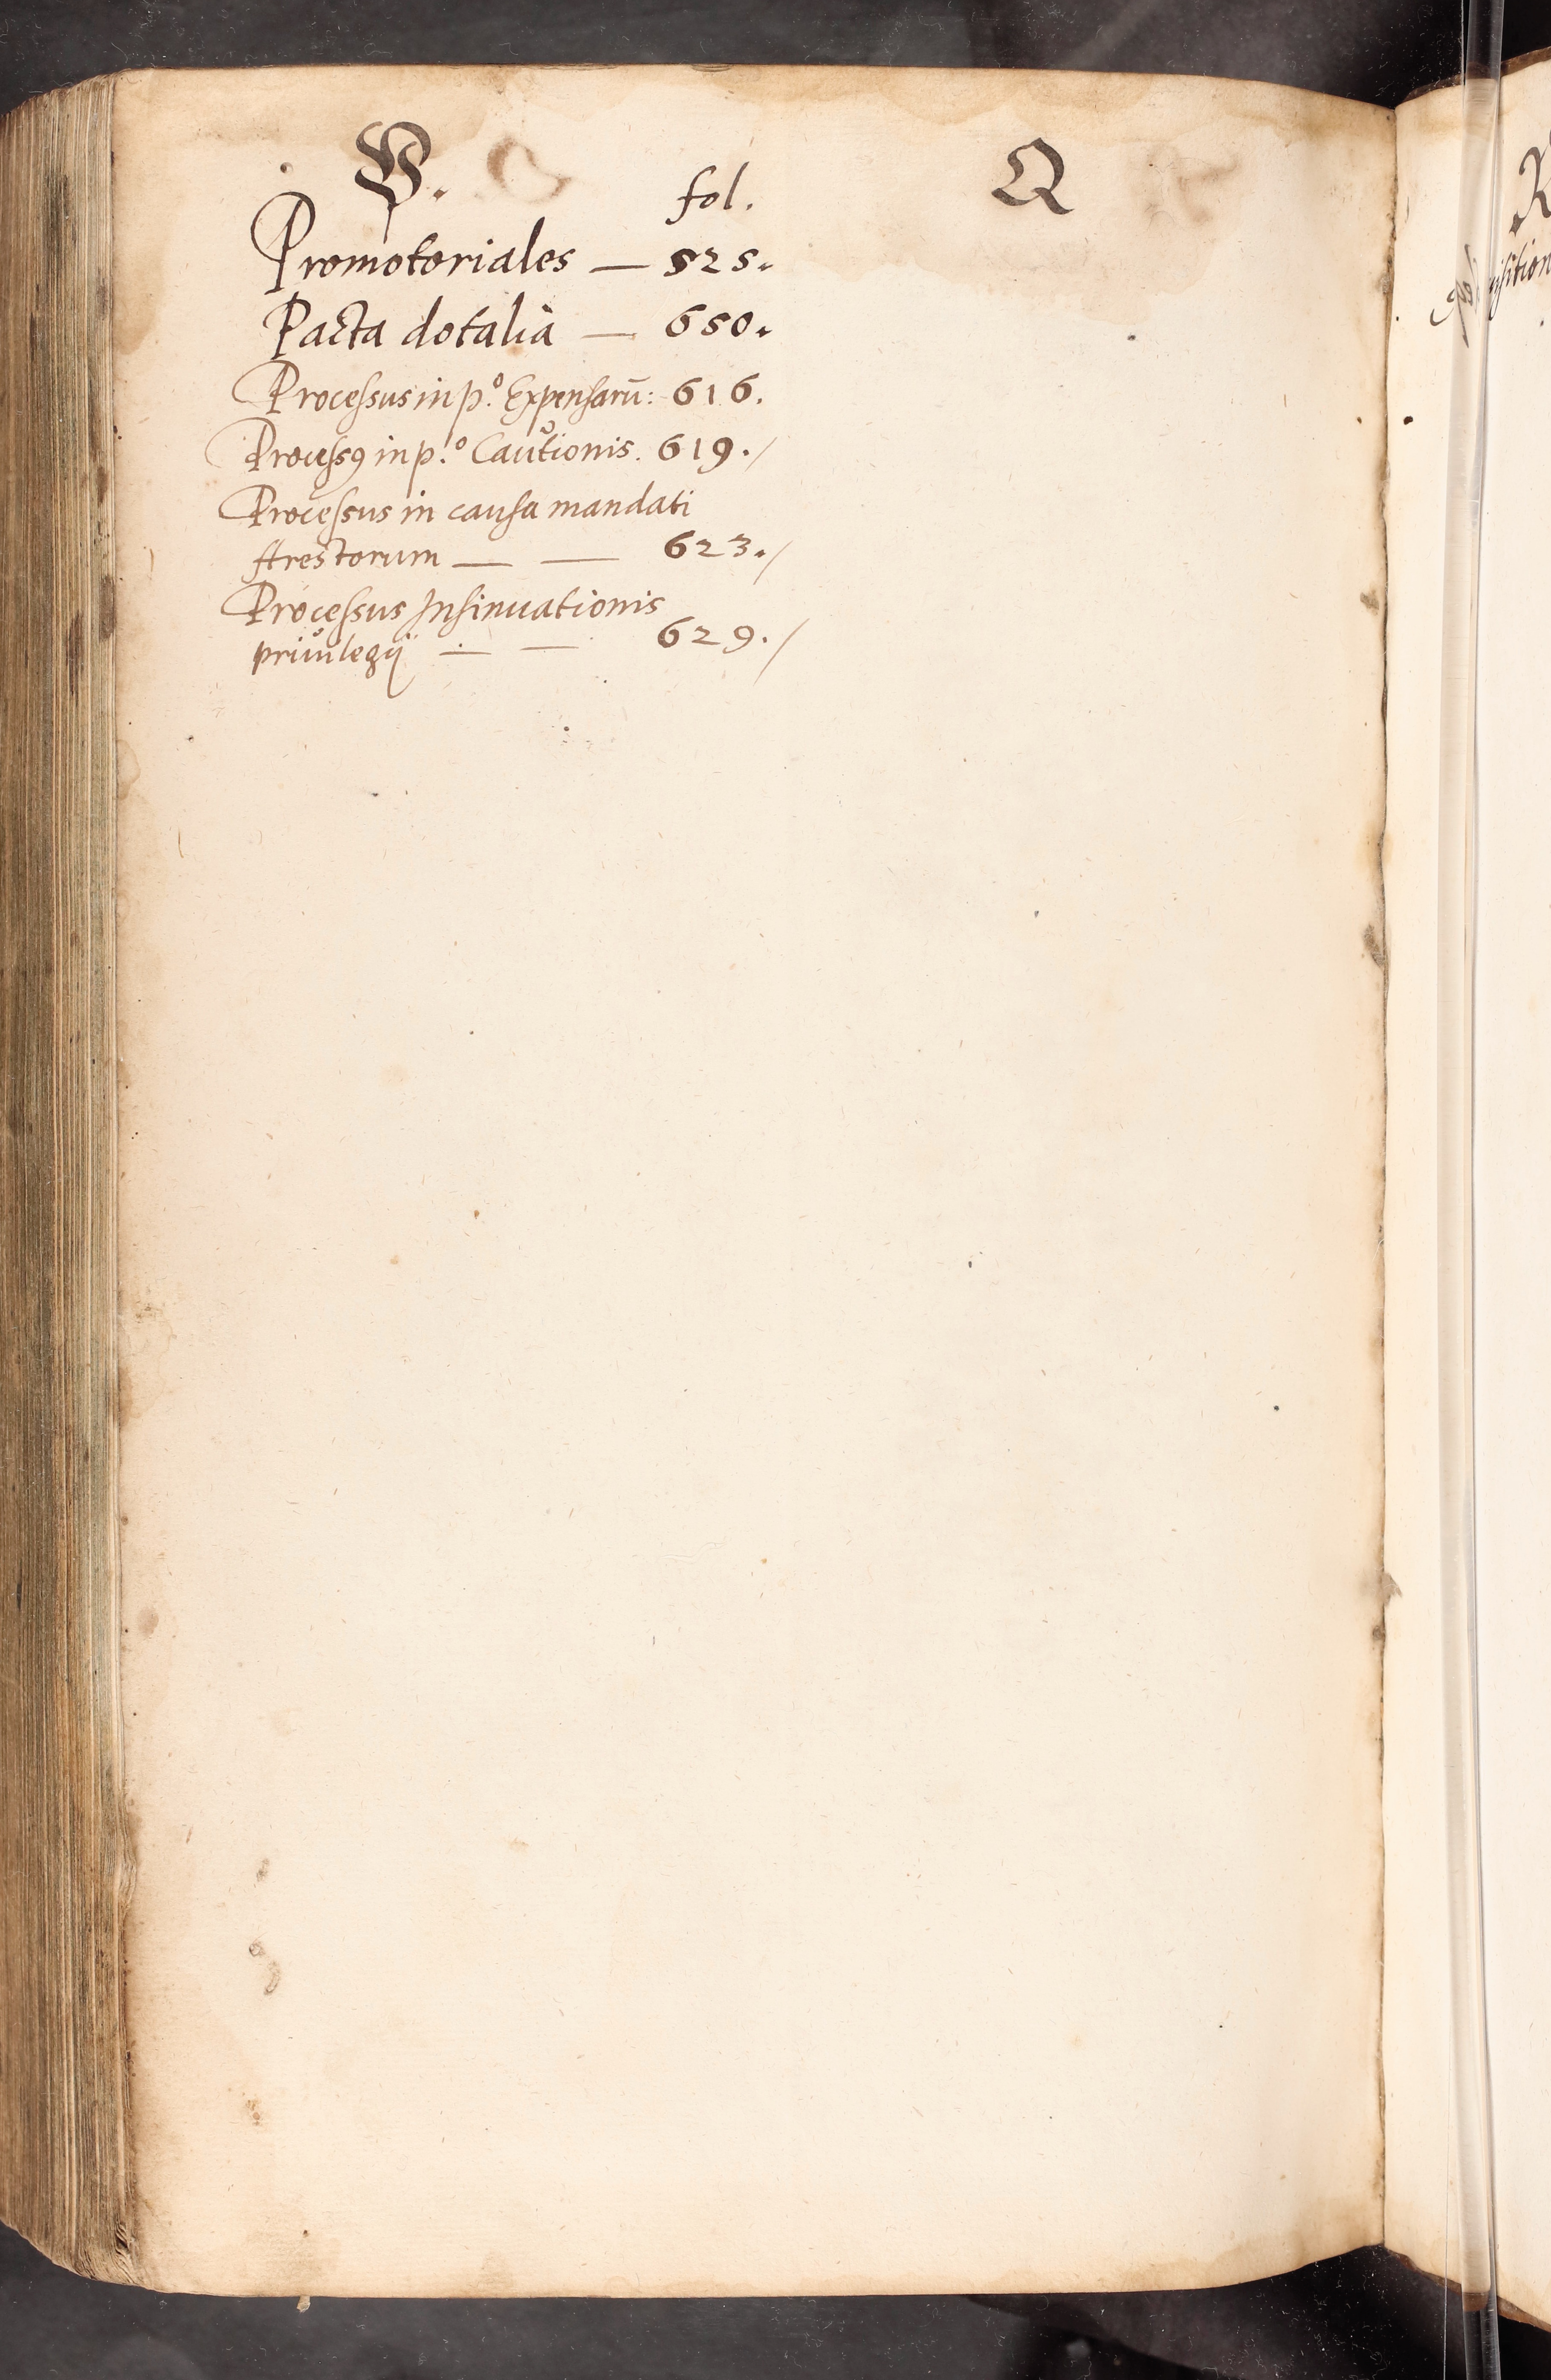 P.
fol.
Promotoriales — 525.
Pacta dotalia — 650.
Processus in p.º Expensarū: 616.
Processꝯ in p.º Cautionis. 619./
Processus in causa mandati
Arrestorum — — 623./
Processus Insinuationis
priuilegij — — 629./
Q